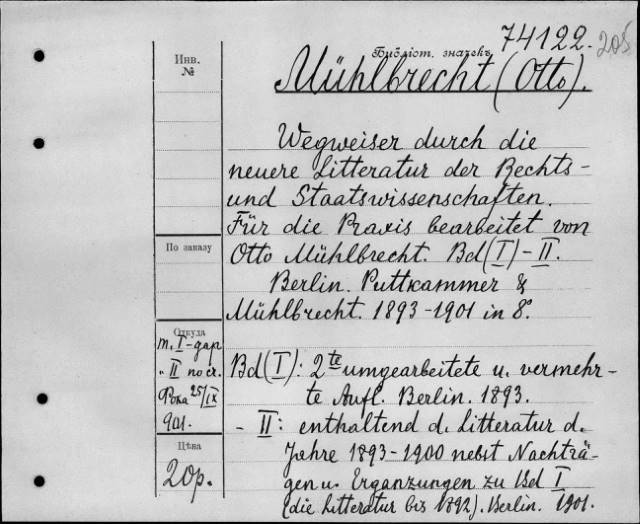 74122.
205
Библіот. значекъ
Инв.
№
Mühlbrecht (Otto).
Wegweiser durch die
neuere Litteratur der Rechts-
und Staatswissenschaften.
Für die Praxis bearbeitet von
Otto Mühlbrecht. Bd (I) - II.
Berlin. Puttkammer &
Mühlbrecht. 1893-1901 in 8º.
По заказу
Откуда
т. I - дар
" II по сч.
25/IX
901.
Цѣна
20р.
Bd (I): 2te umgearbeitete u. vermehr-
te Aufl. Berlin. 1893.
- II: enthaltend d. Litteratur d.
Jahre 1893-1900 nebst Nachträ-
gen u. Ergänzungen zu Bd I
(die Litteratur bis 1892). Berlin. 1901.